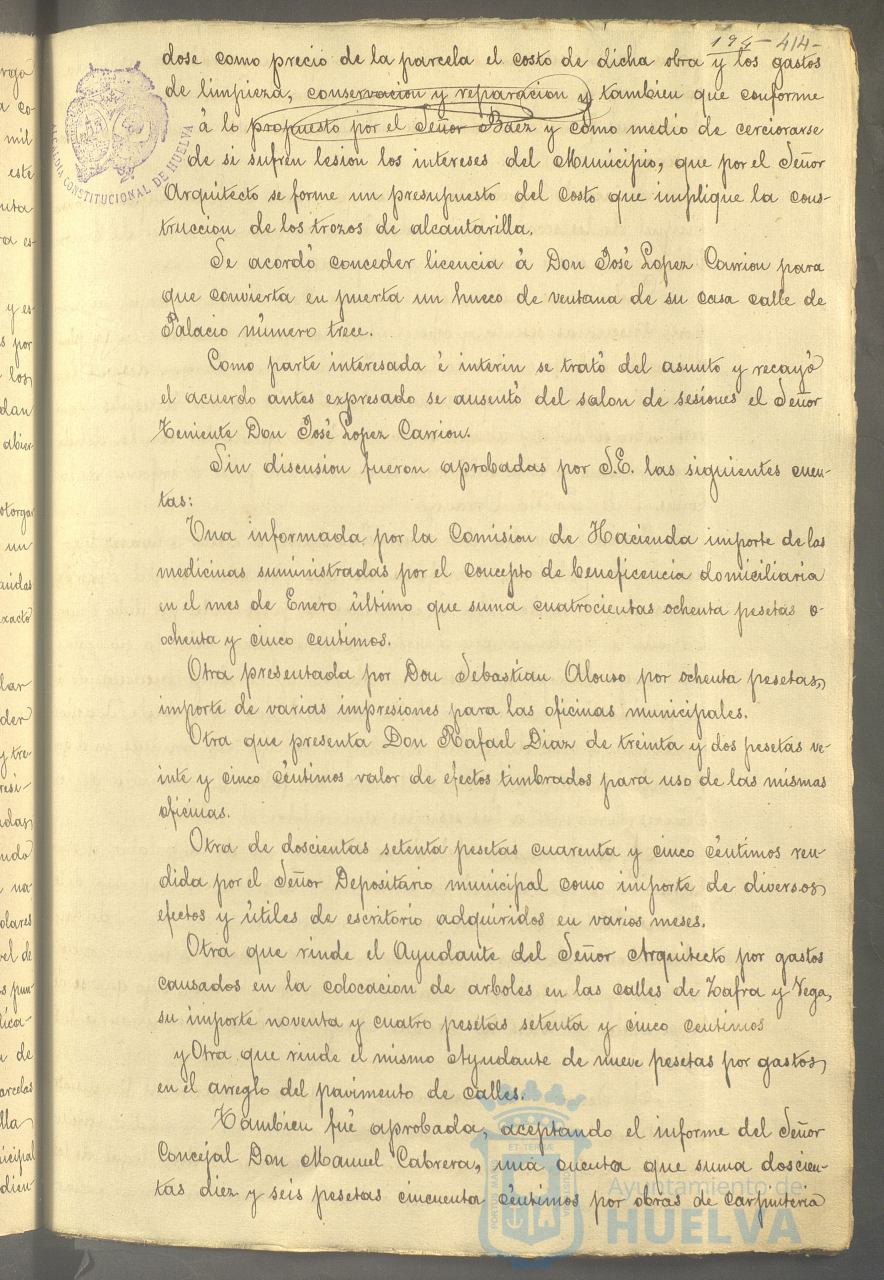 194 - 414 -
dose como precio de la parcela el costo de dicha obra y los gastos
de limpieza, conservacion y reparacion y tambien que conforme
á lo propuesto por el Señor Baez y como medio de cerciorarse
de si sufren lesion los intereses del Municipio, que por el Señor
Arquitecto se forme un presupuesto del costo que implique la cons-
truccion de los trozos de alcantarilla.
Se acordó conceder licencia á Don José Lopez Carrion para
que convierta en puerta un hueco de ventana de su casa calle de
Palacio número trece.
Como parte interesada é interin se trató del asunto y recayó
el acuerdo antes expresado se ausentó del salon de sesiones el Señor
Teniente Don José Lopez Carrion.
Sin discusion fueron aprobadas por S.E. las siguientes cuen-
tas:
Una informada por la Comision de Hacienda importe de las
medicinas suministradas por el concepto de beneficencia domiciliaria
en el mes de Enero último que suma cuatrocientas ochenta pesetas
ochenta y cinco centimos.
Otra presentada por Don Sebastian Alonso por ochenta pesetas,
importe de varias impresiones para las oficinas municipales.
Otra que presenta Don Rafael Diaz de treinta y dos pesetas ve-
inte y cinco céntimos valor de efectos timbrados para uso de las mismas
oficinas.
Otra de doscientas setenta pesetas cuarenta y cinco céntimos ren-
dida por el Señor Depositario municipal como importe de diversos
efectos y útiles de escritorio adquiridos en varios meses.
Otra que rinde el Ayudante del Señor Arquitecto por gastos
causados en la colocacion de arboles en las calles de Zafra y Vega,
su importe noventa y cuatro pesetas setenta y cinco centimos
y Otra que rinde el mismo Ayudante de nueve pesetas por gastos
en el arreglo del pavimento de calles.
Tambien fué aprobada, aceptando el informe del Señor
Concejal Don Manuel Cabrera, una cuenta que suma doscien-
tas diez y seis pesetas cincuenta céntimos por obras de carpinteria
ALCALDIA CONSTITUCIONAL DE HUELVA
Ayuntamiento de
HUELVA